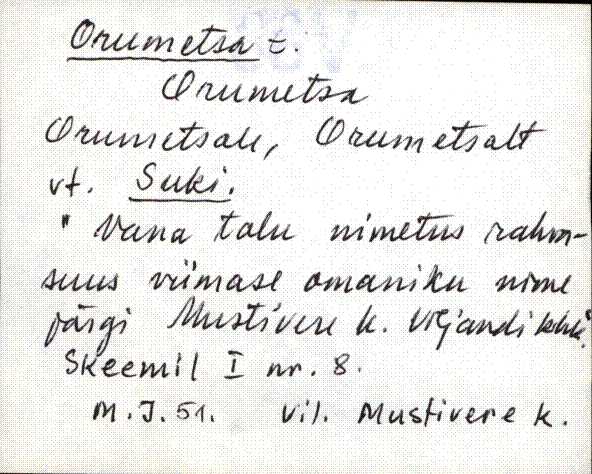 Orumetsa t.
Orumetsa
Orumetsale, Orumetsalt
vt. Suki.
" Vana talu nimetus rahva-
suus viimase omaniku nime
järgi Mustivere k. Viljandi khk."
Skeemil I nr. 8.
M.J. 51. Vil. Mustivere k.